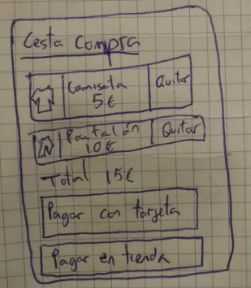 Cesta Compra
Camiseta
5€
Quitar
Pantalón
10€
Quitar
Total 15€
Pagar con tarjeta
Pagar en tienda